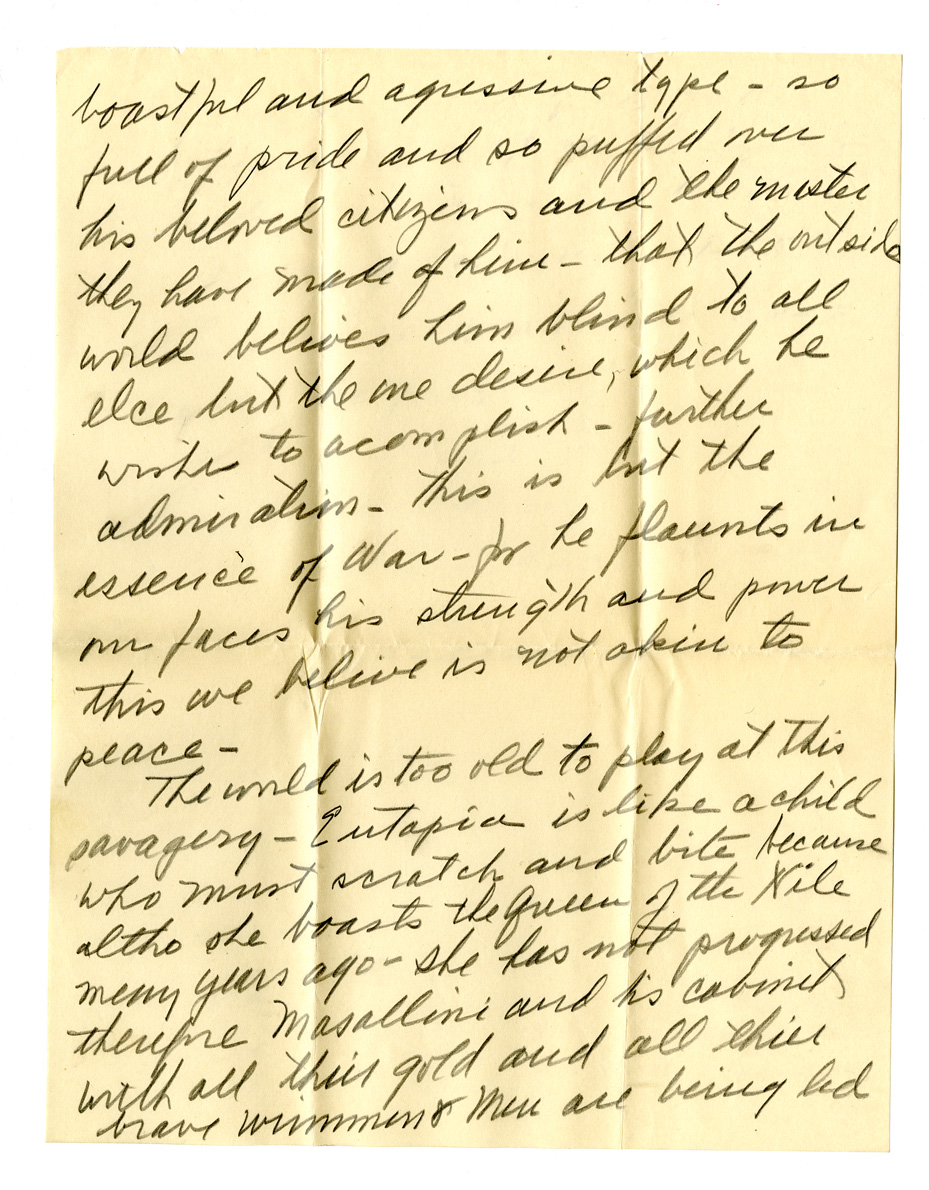 boastful and agressive type - so
full of pride and so puffed over
his beloved citizens and the master
they have made of him - that the outside
world belives him blind to all
elce but the one desire, which he
wishes to acomplish - further
admiration - This is but the
essence of War - for he flaunts in
our faces his strength and power
this we belive is not akin to
peace -
The world is too old to play at this
savagery - Eutopia is like a child
who must scratch and bite because
altho she boasts the Queen of the Nile
meny years ago - she has not progressed
therefore Masallini and his cabinet
with all thier gold and all thier
brave wimmen & Men are being led